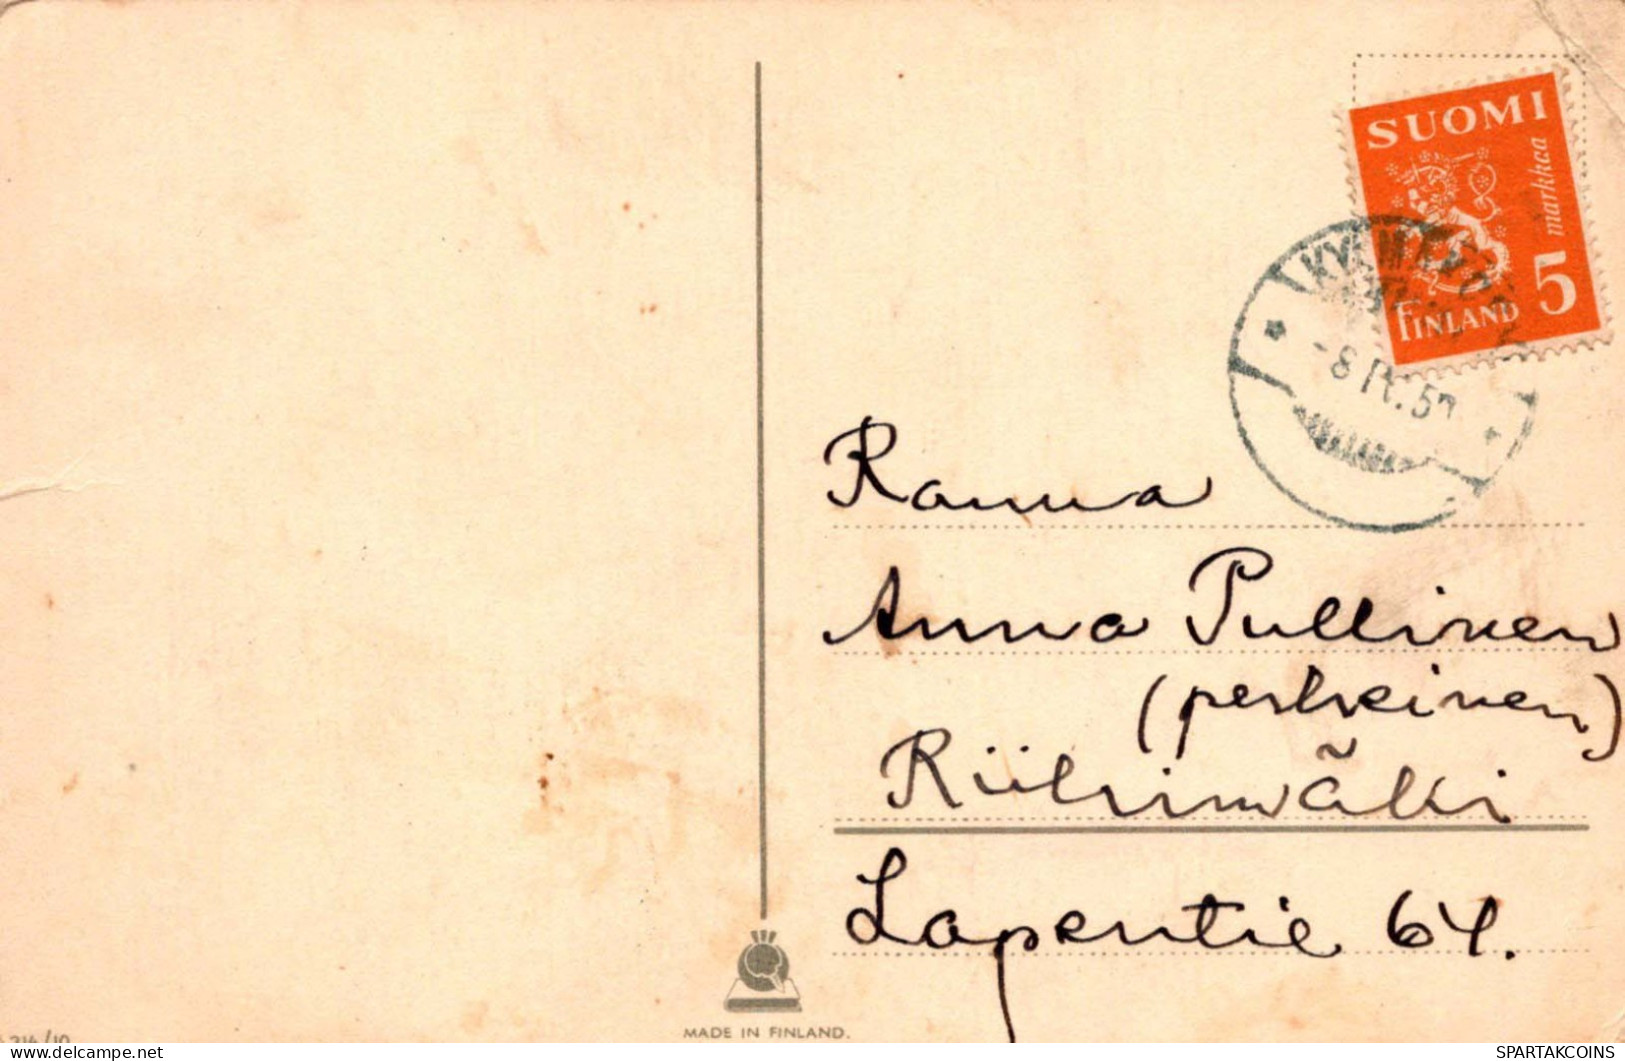 SUOMI
markkaa
5
FINLAND
-8.IV.5
Rouva
Anna Pullinen
(perheinen)
Riihimäki
Lopentie 64.
MADE IN FINLAND.
delcampe.net
SPARTAKCOINS